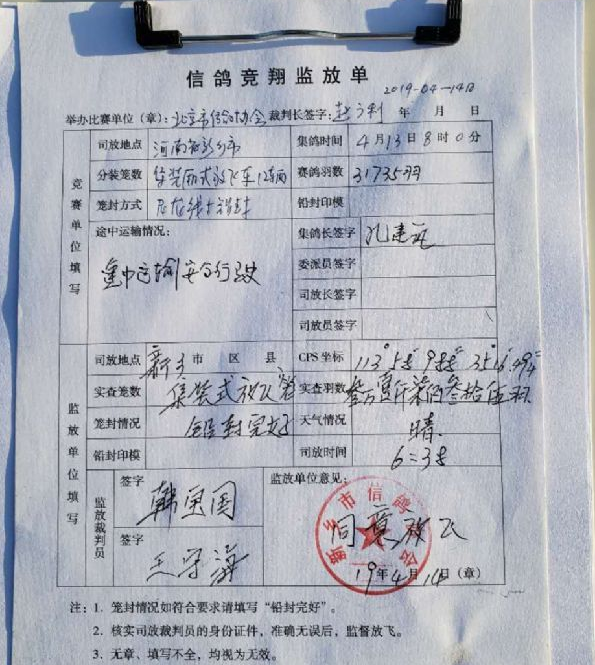 信鸽竞翔监放单
2019-04-14日
举办比赛单位（章）：北京市信鸽协会 裁判长签字：赵了利 年 月 日
竞赛单位填写
司放地点 河南省新乡市 集鸽时间 4月13日8时0分
分装笼数 集装厢式放飞车12辆 赛鸽羽数 31735羽
笼封方式 铅封 铅封印模
途中运输情况： 集鸽长签字 孔建
途中运输安全行驶 委派员签字
司放长签字
司放员签字
监放单位填写
司放地点 新乡市 区 县 GPS坐标 113°58′988″ 35°16′494″
实查笼数 集装式放飞笼 实查羽数 叁万壹仟柒佰叁拾伍羽
笼封情况 铅封完好 天气情况 晴
铅封印模 司放时间 6:38
监放裁判员 签字 韩宝国 监放单位意见：
同意放飞
新乡市信鸽协会
签字 王守海 19年4月14日（章）
注：1. 笼封情况如符合要求请填写“铅封完好”。
2. 核实司放裁判员的身份证件，准确无误后，监督放飞。
3. 无章、填写不全，均视为无效。